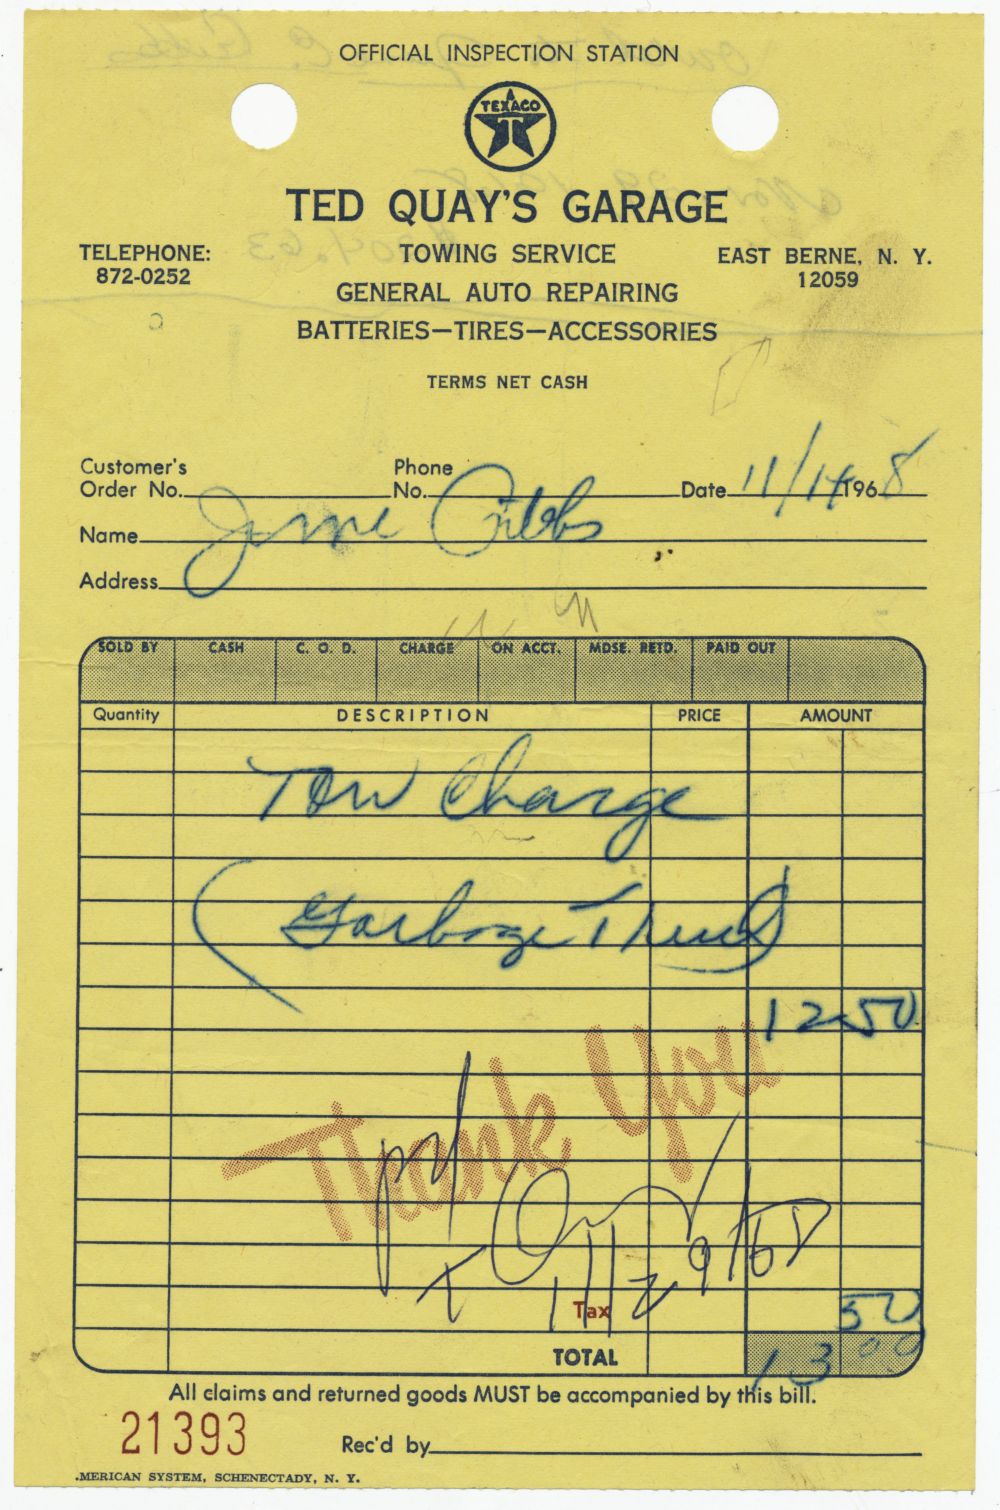 OFFICIAL INSPECTION STATION
TEXACO
T
TED QUAY'S GARAGE
TELEPHONE:
872-0252
TOWING SERVICE
EAST BERNE, N. Y.
12059
GENERAL AUTO REPAIRING
BATTERIES—TIRES—ACCESSORIES
TERMS NET CASH
Customer's
Order No.
Phone
No.
Date 11/14 1968
Name Gibbs
Address
SOLD BY CASH C. O. D. CHARGE ON ACCT. MDSE. RETD. PAID OUT
Quantity DESCRIPTION PRICE AMOUNT
Tow Charge
(Garbage Truck)
12 50
Thank You
pd
11/29/68
Tax 50
TOTAL 13 00
All claims and returned goods MUST be accompanied by this bill.
21393
Rec'd by
MERICAN SYSTEM, SCHENECTADY, N. Y.